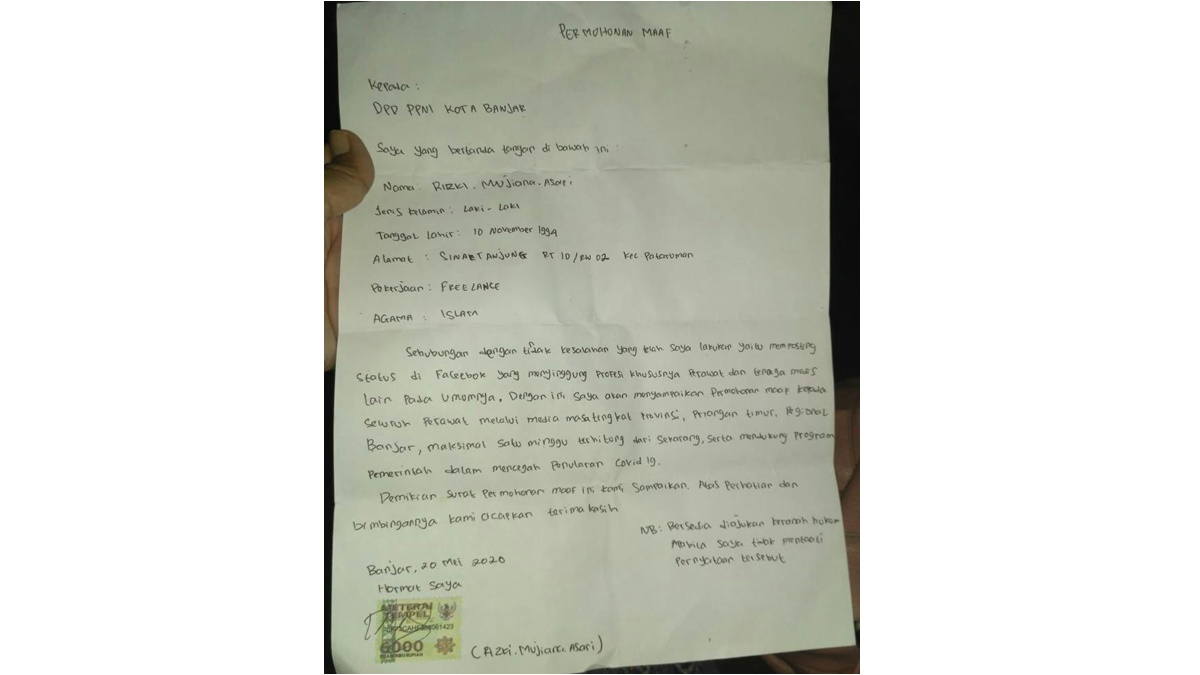 PERMOHONAN MAAF
Kepada :
DPD PPNI KOTA BANJAR
Saya yang bertanda tangan di bawah ini :
Nama : RIZKI . Mujiana . Asari
Jenis kelamin : Laki - Laki
Tanggal Lahir : 10 November 1994
Alamat : SINARTANJUNG RT 10/RW 02 Kec Pataruman
Pekerjaan : FREELANCE
AGAMA : ISLAM
Sehubungan dengan tidak kesalahan yang telah saya lakukan yaitu memposting
status di Facebook yang menyinggung Profesi khususnya Perawat dan tenaga
lain Pada Umomnya, Dengan ini Saya akan menyampaikan Permohonan maaf kepada
seluruh Perawat melalui media masa tingkat Provinsi, Priangan timur, Regional
Banjar, maksimal satu minggu terhitung dari Sekarang, Serta mendukung Program
Pemerintah dalam mencegah Penularan Covid 19.
Demikian Surat Permohonan maaf ini kami Sampaikan. Atas Perhatian dan
bimbingannya kami Ucapkan terima kasih
NB : Bersedia diajukan keranah hukum
Apabila Saya tidak mentaati
Pernyataan tersebut
Banjar, 20 Mei 2020
Hormat Saya
METERAI
TEMPEL
6000
(Rizki . Mujiana . Asari)